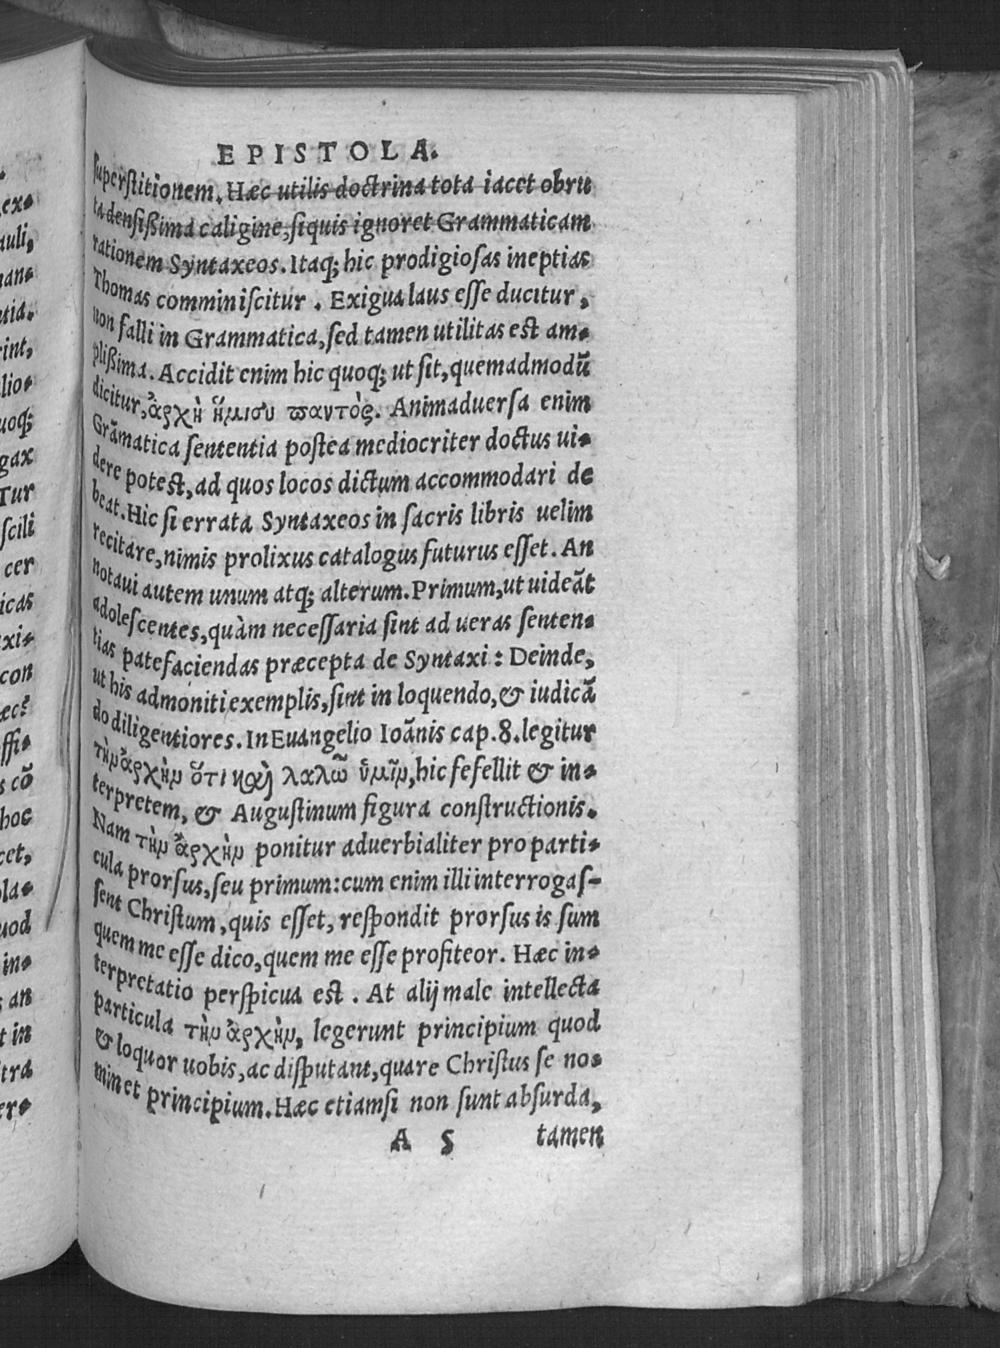 EPISTOLA.
superstitionem. Hæc utilis doctrina tota iacet obru
ta densißima caligine, siquis ignoret Grammaticam
rationem Syntaxeos. Itaq; hic prodigiosas ineptias
Thomas comminiscitur. Exigua laus esse ducitur,
non falli in Grammatica, sed tamen utilitas est am-
plißima. Accidit enim hic quoq; ut sit, quemadmodū
dicitur, ἀρχὴ ἥμισυ παντὸς. Animaduersa enim
Grāmatica sententia postea mediocriter doctus ui-
dere potest, ad quos locos dictum accommodari de
beat. Hic si errata Syntaxeos in sacris libris uelim
recitare, nimis prolixus catalogus futurus esset. An
notaui autem unum atq; alterum. Primum, ut uideāt
adolescentes, quàm necessaria sint ad ueras senten-
tias patefaciendas præcepta de Syntaxi: Deinde,
ut his admoniti exemplis, sint in loquendo, & iudicā
do diligentiores. In Euangelio Ioānis cap. 8. legitur
τὴν ἀρχὴν ὅτι καὶ λαλῶ ὑμῖν, hic fefellit & in-
terpretem, & Augustinum figura constructionis.
Nam τὴν ἀρχὴν ponitur aduerbialiter pro parti-
cula prorsus, seu primum: cum enim illi interrogas-
sent Christum, quis esset, respondit prorsus is sum
quem me esse dico, quem me esse profiteor. Hæc in-
terpretatio perspicua est. At alij male intellecta
particula τὴν ἀρχὴν, legerunt principium quod
& loquor uobis, ac disputant, quare Christus se no-
minet principium. Hæc etiamsi non sunt absurda,
A 5 tamen
.
ex-
auli,
man-
utia.
rint,
lio-
uoq;
gax
Tur
scili
cer
icas
xi-
con
æc?
ffi-
s cō
hoc
cet,
ola-
uod
in-
an
t in
tra
er-